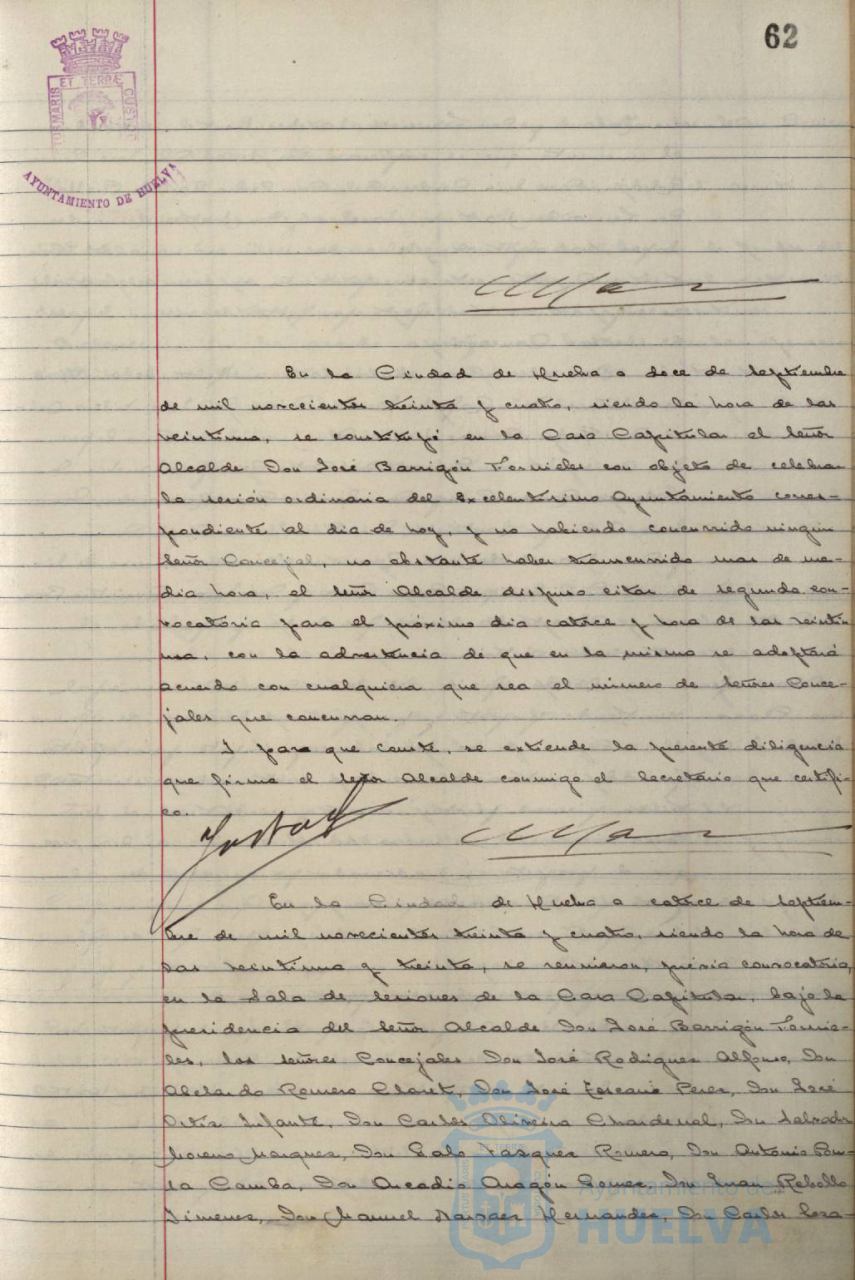 62
ET TERRÆ
MARIS
CUSTOS
AYUNTAMIENTO DE HUELVA
En la Ciudad de Huelva a doce de Septiembre
de mil novecientos treinta y cuatro, siendo la hora de las
veintiuna, se constituyó en la Casa Capitular el Señor
Alcalde Don José Barrigón Fornieles con objeto de celebrar
la sesión ordinaria del Excelentísimo Ayuntamiento corres-
pondiente al dia de hoy, y no habiendo concurrido ningun
Señor Concejal, no obstante haber transcurrido mas de me-
dia hora, el Señor Alcalde dispuso citar de segunda con-
vocatoria para el próximo dia catorce y hora de las veinti-
una, con la advertencia de que en la misma se adoptará
acuerdo con cualquiera que sea el número de Señores Conce-
jales que concurran.
Y para que conste, se extiende la presente diligencia
que firma el Señor Alcalde conmigo el Secretario que certifi-
co.
En la Ciudad de Huelva a catorce de Septiem-
bre de mil novecientos treinta y cuatro, siendo la hora de
las veintiuna y treinta, se reunieron, prévia convocatoria,
en la Sala de Sesiones de la Casa Capitular, bajo la
presidencia del Señor Alcalde Don José Barrigón Fornie-
les, los Señores Concejales Don José Rodriguez Alfonso, Don
Abelardo Romero Claret, Don José Toscano Perez, Don José
Ortiz Infante, Don Carlos Oliveira Chardenal, Don Salvador
Moreno Marquez, Don Galo Vazquez Romero, Don Antonio Pon-
ce Camba, Don Arcadio Aragón Gomez, Don Juan Rebollo
Jimenez, Don Manuel Narvaez Hernandez, Don Carlos
Ayuntamiento de
HUELVA